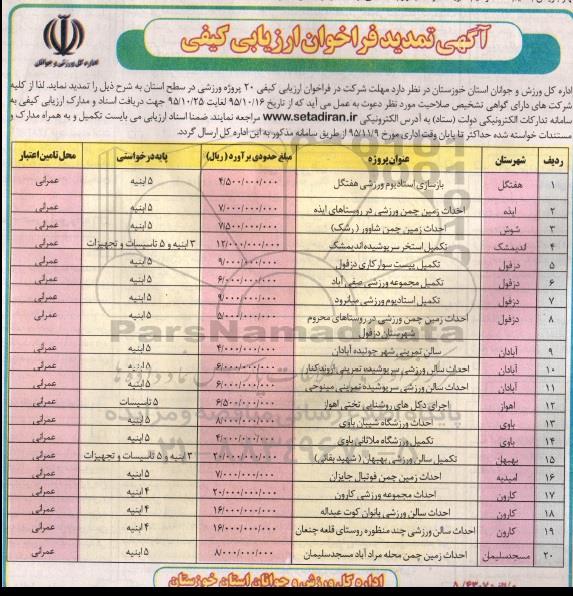 آگهی تمدید فراخوان ارزیابی کیفی
اداره کل ورزش و جوانان
اداره کل ورزش و جوانان استان خوزستان در نظر دارد مهلت شرکت در فراخوان ارزیابی کیفی ۲۰ پروژه ورزشی در سطح استان به شرح ذیل را تمدید نماید. لذا از کلیه
شرکت های دارای گواهی تشخیص صلاحیت مورد نظر دعوت به عمل می آید که از تاریخ ۹۵/۱۰/۱۶ لغایت ۹۵/۱۰/۲۵ جهت دریافت اسناد و مدارک ارزیابی کیفی به
سامانه تدارکات الکترونیکی دولت (ستاد) به آدرس الکترونیکی www.setadiran.ir مراجعه نمایند. ضمنا اسناد ارزیابی می بایست تکمیل و به همراه مدارک و
مستندات خواسته شده حداکثر تا پایان وقت اداری مورخ ۹۵/۱۱/۹ از طریق سامانه مذکور به این اداره کل ارسال گردد.
ردیف شهرستان عنوان پروژه مبلغ حدودی برآورد (ریال) پایه درخواستی محل تامین اعتبار
۱ هفتگل بازسازی استادیوم ورزشی هفتگل ۴/۵۰۰/۰۰۰/۰۰۰ ۵ ابنیه عمرانی
۲ ایذه احداث زمین چمن ورزشی در روستاهای ایذه ۷/۰۰۰/۰۰۰/۰۰۰ ۵ ابنیه عمرانی
۳ شوش احداث زمین چمن شاوور (رشک) ۷/۵۰۰/۰۰۰/۰۰۰ ۵ ابنیه عمرانی
۴ اندیمشک تکمیل استخر سرپوشیده اندیمشک ۱۲/۰۰۰/۰۰۰/۰۰۰ ۳ ابنیه و ۵ تاسیسات و تجهیزات عمرانی
۵ دزفول تکمیل پیست سوارکاری دزفول ۹/۰۰۰/۰۰۰/۰۰۰ ۵ ابنیه عمرانی
۶ دزفول تکمیل مجموعه ورزشی صفی آباد ۶/۰۰۰/۰۰۰/۰۰۰ ۵ ابنیه عمرانی
۷ دزفول تکمیل استادیوم ورزشی میانرود ۹/۰۰۰/۰۰۰/۰۰۰ ۵ ابنیه عمرانی
۸ دزفول احداث زمین چمن ورزشی در روستاهای محروم ۵/۰۰۰/۰۰۰/۰۰۰ ۵ ابنیه عمرانی
شهرستان دزفول
۹ آبادان سالن تمرینی شهر چوئبده آبادان ۴/۰۰۰/۰۰۰/۰۰۰ ۵ ابنیه عمرانی
۱۰ آبادان احداث سالن ورزشی سرپوشیده تمرینی اروندکنار ۶/۰۰۰/۰۰۰/۰۰۰ ۵ ابنیه عمرانی
۱۱ آبادان احداث سالن ورزشی سرپوشیده تمرینی مینوحی ۶/۰۰۰/۰۰۰/۰۰۰ ۵ ابنیه عمرانی
۱۲ اهواز اجرای دکل های روشنایی تختی اهواز ۶/۵۰۰/۰۰۰/۰۰۰ ۵ تاسیسات عمرانی
۱۳ باوی احداث ورزشگاه شیبان باوی ۸/۰۰۰/۰۰۰/۰۰۰ ۵ ابنیه عمرانی
۱۴ باوی تکمیل ورزشگاه ملاثانی باوی ۴/۰۰۰/۰۰۰/۰۰۰ ۵ ابنیه عمرانی
۱۵ بهبهان تکمیل سالن ورزشی بهبهان (شهید بقائی) ۲۰/۰۰۰/۰۰۰/۰۰۰ ۳ ابنیه و ۵ تاسیسات و تجهیزات عمرانی
۱۶ امیدیه احداث زمین چمن فوتبال جایزان ۷/۰۰۰/۰۰۰/۰۰۰ ۵ ابنیه عمرانی
۱۷ کارون احداث مجموعه ورزشی کارون ۲۰/۰۰۰/۰۰۰/۰۰۰ ۴ ابنیه عمرانی
۱۸ کارون احداث سالن ورزشی بانوان کوت عبداله ۱۶/۰۰۰/۰۰۰/۰۰۰ ۴ ابنیه عمرانی
۱۹ کارون احداث سالن ورزشی چند منظوره روستای قلعه چنعان ۱۶/۰۰۰/۰۰۰/۰۰۰ ۴ ابنیه عمرانی
۲۰ مسجدسلیمان احداث زمین چمن محله مراد آباد مسجدسلیمان ۸/۰۰۰/۰۰۰/۰۰۰ ۵ ابنیه عمرانی
ParsNamadData
اداره کل ورزش و جوانان استان خوزستان